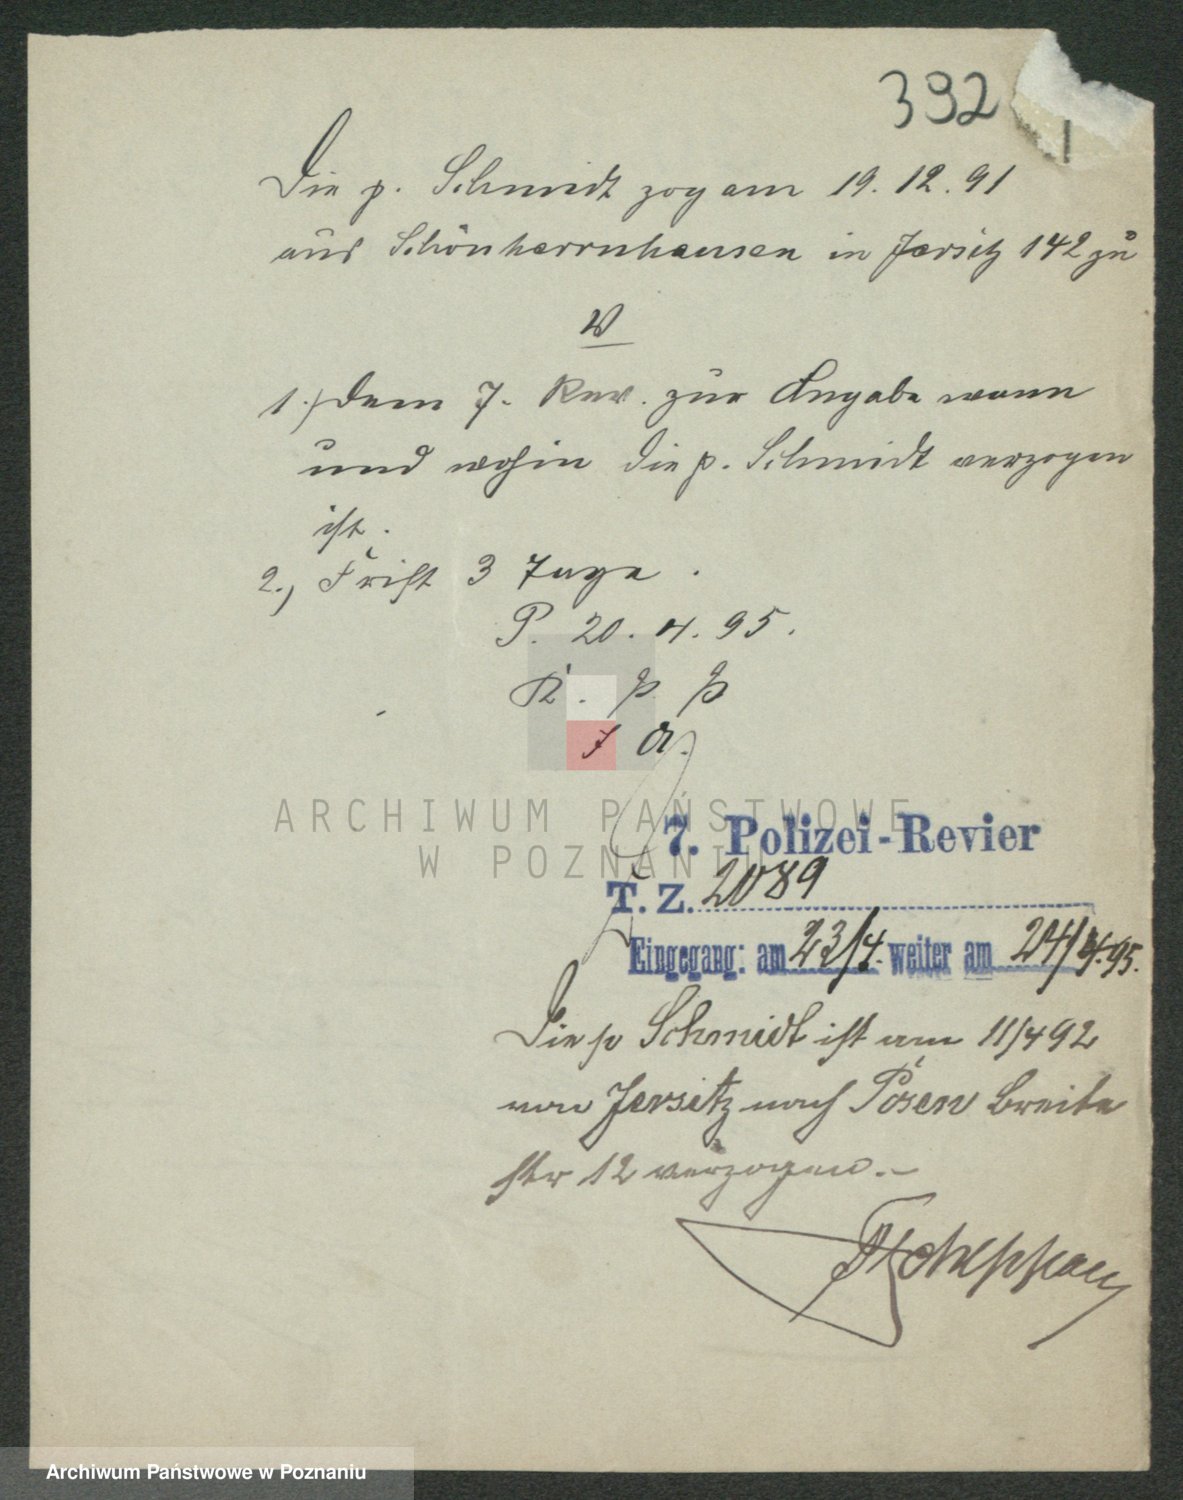 392
Die p. Schmidt zog am 19.12.91
aus Schönherrnhausen in Jersitz 142 zu
V
1.) dem 7. Rev. zur Angabe wann
und wohin die p. Schmidt verzogen
ist.
2.) Frist 3 Tage.
P. 20.4.95.
K. P. P.
I A.
7. Polizei-Revier
T. Z. 2089
Eingegang: am 23/4. weiter am 24/4.95.
Die p Schmidt ist am 11/4 92
von Jersitz nach Posen Breite
str 12 verzogen.-
ARCHIWUM PAŃSTWOWE
W POZNANIU
Archiwum Państwowe w Poznaniu